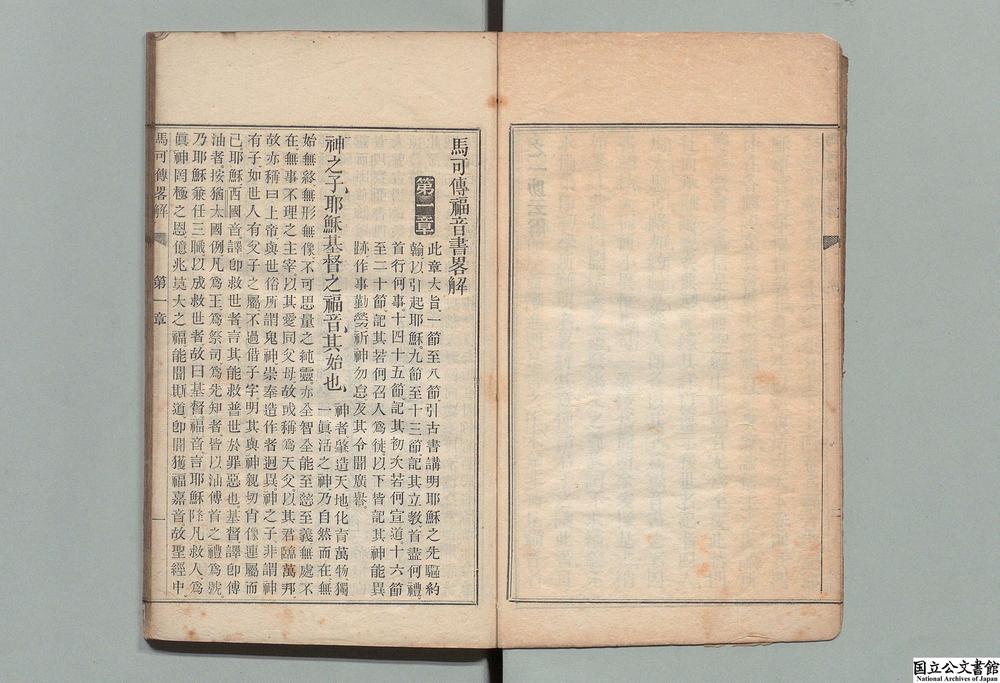 馬可傳福音書畧解
第一章
此章大旨一節至八節引古書講明耶穌之先驅約
翰以引起耶穌九節至十三節記其立教首盡何禮
首行何事十四十五節記其初次若何宣道十六節
至二十節記其若何召人爲徒以下皆記其神能異
跡作事勤勞祈神勿怠及其令聞廣譽
神之子、耶穌基督之福音、其始也、
神者肇造天地化育萬物獨
一眞活之神乃自然而在無
始無終無形無像不可思量之純靈亦全智全能至慈至義無處不
在無事不理之主宰以其愛同父母故或稱爲天父以其君臨萬邦
故亦稱曰上帝與世俗所謂鬼神崇奉造作者迥異神之子非謂神
有子如世人有父子之屬不過借子字明其與神親切肖像連屬而
已耶穌西國音譯卽救世者言其能救普世於罪惡也基督譯卽傅
油者按猶太國例凡爲王爲祭司爲先知者皆以油傅首之禮爲號
乃耶穌兼任三職以成救世者故曰基督福音言耶穌降凡救人爲
眞神罔極之恩億兆莫大之福能聞斯道卽開獲福嘉音故聖經中
馬可傳畧解
第一章
一
国立公文書館
National Archives of Japan